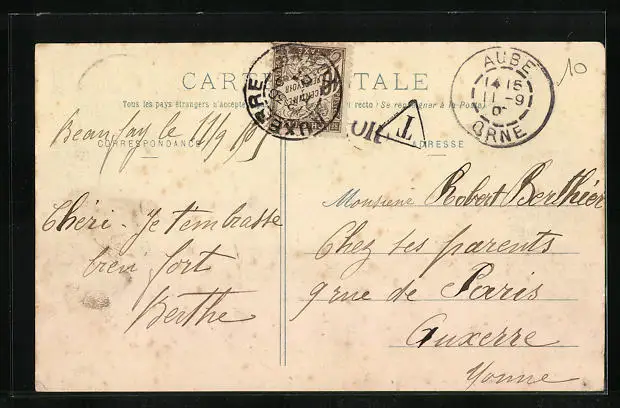 CARTE POSTALE
Tous les pays étrangers n'acceptent recto (Se renseigner à la Poste)
CORRESPONDANCE
ADRESSE
AUXERRE
10
CENTIMES
AUBE
14 15
11 -9
ORNE
10
T
Beaufay le 11/9
Chéri - Je t'embrasse
bien fort
Berthe
Monsieur Robert Berthier
Chez ses parents
9 rue de Paris
Auxerre
Yonne